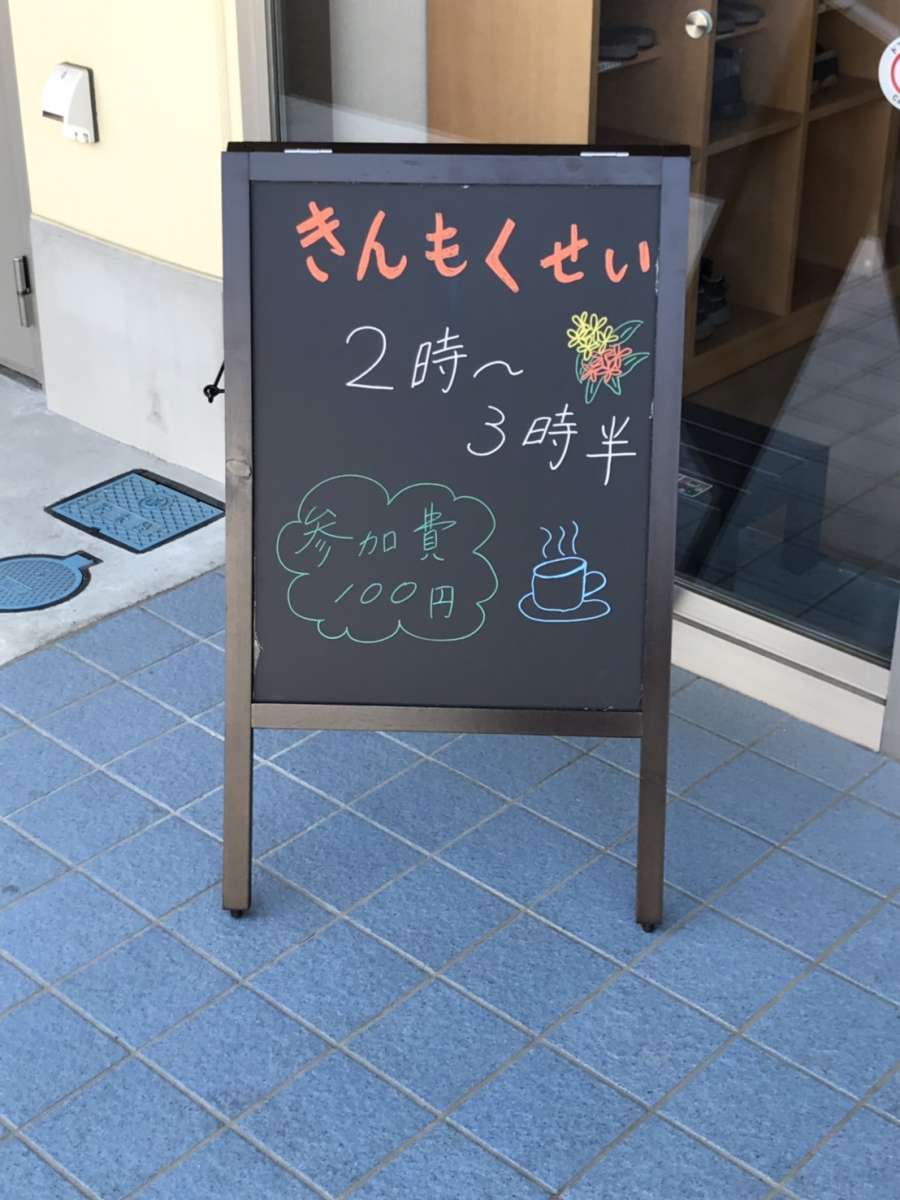 きんもくせい
2時～
3時半
参加費
100円